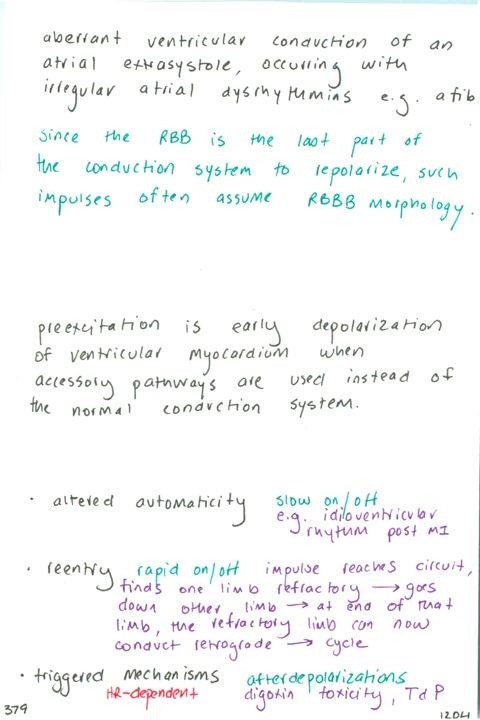 aberrant ventricular conduction of an
atrial extrasystole, occurring with
irregular atrial dysrhytumins e.g. afib
since the RBB is the last part of
the conduction system to repolarize, such
impulses often assume RBBB morphology.
preexcitation is early depolarization
of ventricular myocardium when
accessory pathways are used instead of
the normal conduction system.
· altered automaticity slow on/off
e.g. idioventricular
rhytum post MI
· reentry rapid on/off impulse reaches circuit,
finds one limb refractory → goes
down other limb → at end of that
limb, the refractory limb can now
conduct retrograde → cycle
· triggered mechanisms afterdepolarizations
HR-dependent digoxin toxicity, TdP
379 1204